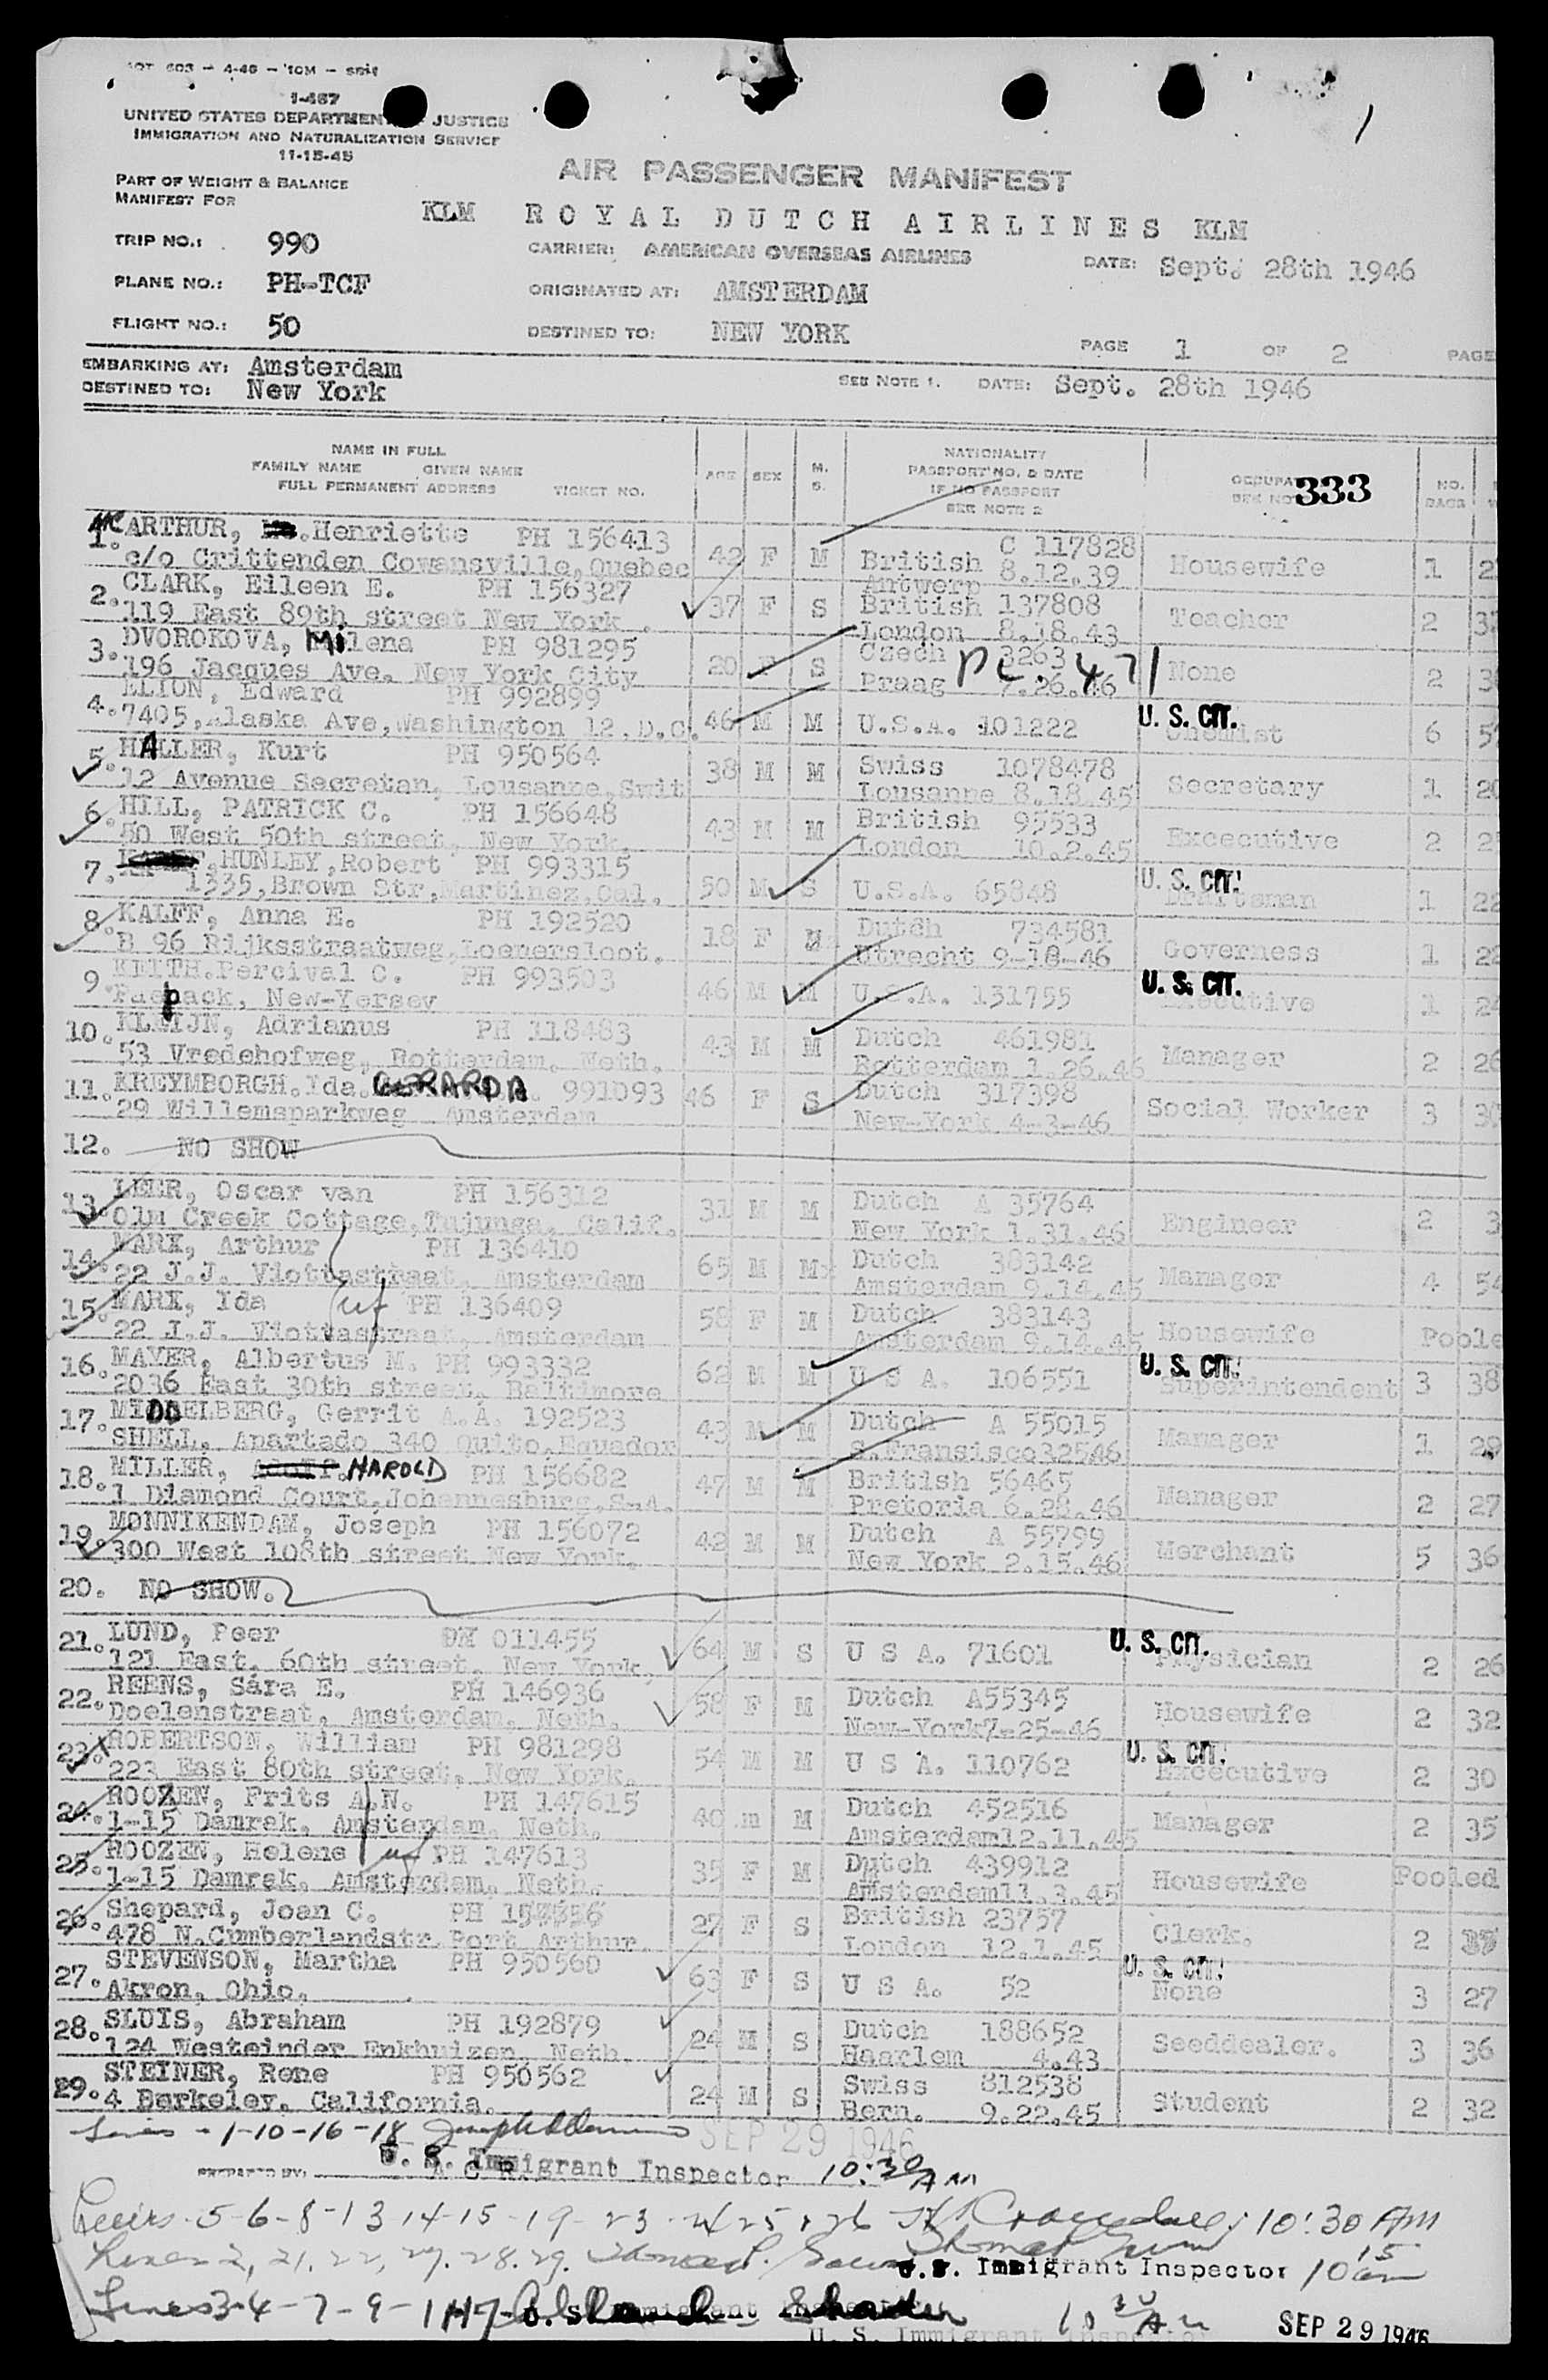 1-467
UNITED STATES DEPARTMENT JUSTICE
IMMIGRATION AND NATURALIZATION SERVICE
11-15-45
PART OF WEIGHT & BALANCE
MANIFEST FOR
AIR PASSENGER MANIFEST
KLM ROYAL DUTCH AIRLINES KLM
TRIP NO.: 990
CARRIER: AMERICAN OVERSEAS AIRLINES
DATE: Sept. 28th 1946
PLANE NO.: PH-TCF
ORIGINATED AT: AMSTERDAM
FLIGHT NO.: 50
DESTINED TO: NEW YORK
PAGE 1 OF 2 PAGE
EMBARKING AT: Amsterdam
DESTINED TO: New York
SEE NOTE 1. DATE: Sept. 28th 1946
NAME IN FULL
FAMILY NAME GIVEN NAME
FULL PERMANENT ADDRESS TICKET NO.
AGE SEX M. S.
NATIONALITY
PASSPORT NO. & DATE
IF NO PASSPORT
SEE NOTE 2
OCCUPA
SEE NO
333
NO. BAGS
1. McARTHUR, Henriette PH 156413 42 F M British C 117828 Housewife 1 2
c/o Crittenden Cowansville, Quebec Antwerp 8.12.39
2. CLARK, Eileen E. PH 156327 37 F S British 137808 Teacher 2 3
119 East 89th street New York. London 8.18.43
3. DVOROKOVA, Milena PH 981295 20 F S Czech 3263 None 2 3
196 Jacques Ave. New York City Praag 7.26.46
4. ELION, Edward PH 992899 46 M M U.S.A. 101222 U. S. CIT. Chemist 6 5
7405, Alaska Ave, Washington 12. D.C.
5. HALLER, Kurt PH 950564 38 M M Swiss 1078478 Secretary 1 20
12 Avenue Secretan, Lousanne, Swit Lousanne 8.18.45
6. HILL, PATRICK C. PH 156648 43 M M British 95533 Excecutive 2 2
80 West 50th street, New York. London 10.2.45
7. HUNLEY, Robert PH 993315 50 M S U.S.A. 65848 U. S. CIT. Draftsman 1 22
1335, Brown Str, Martinez, Cal.
8. KALFF, Anna E. PH 192520 18 F Dutch 734581 Governess 1 22
B 96 Rijksstraatweg, Loenersloot. Utrecht 9-18-46
9. KEITH. Percival C. PH 993503 46 M M U.S.A. 131755 U. S. CIT. Executive 1 24
Pacpack, New-Yersey
10. KLEIJN, Adrianus PH 118483 43 M M Dutch 461981 Manager 2 26
53 Vredehofweg, Rotterdam, Neth. Rotterdam 1.26.46
11. KREYMBORGH. Ida. GERARDA 991093 46 F S Dutch 317398 Social Worker 3 30
29 Willemsparkweg Amsterdam New-York 4-3-46
12. NO SHOW
13. LEER, Oscar van PH 156312 31 M M Dutch A 35764 Engineer 2 3
Olm Creek Cottage, Tujunga, Calif. New York 1.31.46
14. MARX, Arthur PH 136410 65 M M Dutch 383142 Manager 4 54
22 J.J. Viottastraat, Amsterdam Amsterdam 9.14.45
15. MARX, Ida PH 136409 58 F M Dutch 383143 Housewife Poole
22 J.J. Viottastraat, Amsterdam Amsterdam 9.14.45
16. MAYER, Albertus M. PH 993332 62 M M U S A. 106551 U. S. CIT. Superintendent 3 38
2036 East 30th street, Baltimore
17. MIDDELBERG, Gerrit A.A. 192523 43 M M Dutch A 55015 Manager 1 29
SHELL, Apartado 340 Quito, Equador S.Fransisco32546
18. MILLER, HAROLD PH 156682 47 M M British 56465 Manager 2 27
1 Diamond Court, Johannesburg, S.A. Pretoria 6.28.46
19. MONNIKENDAM, Joseph PH 156072 42 M M Dutch A 55799 Merchant 5 36
300 West 108th street New York. New York 2.15.46
20. NO SHOW.
21. LUND, Peer 011455 64 M S U S A. 71601 U. S. CIT. Physician 2 26
121 East. 60th street, New York,
22. REENS, Sara E. PH 146936 58 F M Dutch A55345 Housewife 2 32
Doelenstraat, Amsterdam, Neth. New-York7-25-46
23. ROBERTSON, William PH 981298 54 M M U S A. 110762 U. S. CIT. Excecutive 2 30
223 East 80th street, New York.
24. ROOZEN, Frits A.N. PH 147615 40 m M Dutch 452516 Manager 2 35
1-15 Damrak, Amsterdam, Neth. Amsterdam12.11.45
25. ROOZEN, Helene PH 147613 35 F M Dutch 439912 Housewife Pooled
1-15 Damrak, Amsterdam, Neth. Amsterdam11.3.45
26. Shepard, Joan C. PH 27 F S British 23757 Clerk. 2
478 N.Cumberlandstr. Port Arthur. London 12.1.45
27. STEVENSON, Martha PH 950560 63 F S U S A. 52 U. S. CIT. None 3 27
Akron, Ohio.
28. SLUIS, Abraham PH 192879 24 M S Dutch 188652 Seeddealer. 3 36
124 Westeinder Enkhuizen, Neth. Haarlem 4.43
29. STEINER, Rene PH 950562 24 M S Swiss 812538 Student 2 32
4 Berkeley, California. Bern. 9.22.45
Lines - 1-10-16-18
SEP 29 1946
U. S. Immigrant Inspector 10:30 AM
PREPARED BY:
Lines 5-6-8-13 14-15-19-23-24 25 26 10:30 AM
Lines 2, 21, 22, 27. 28. 29.
U.S. Immigrant Inspector 10 15 am
Lines 3-4-7-9-11 17 10 30 A.M
U. S. Immigrant Inspector
SEP 29 1946